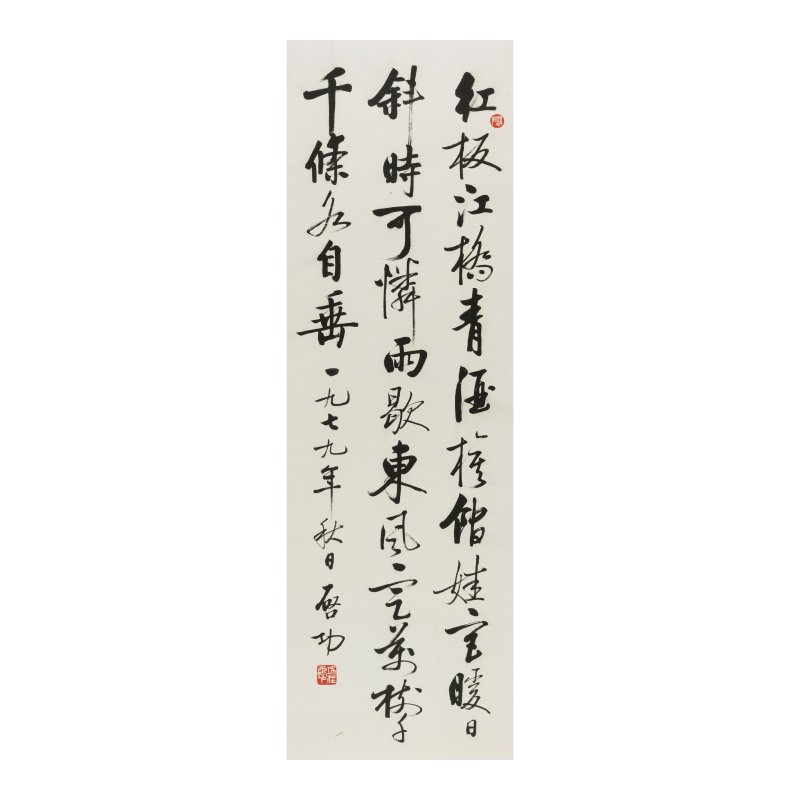 紅板江橋青酒旗館娃宮暖日
斜時可憐雨歇東風定萬樹千
千條各自垂 一九七九年秋日 啓功